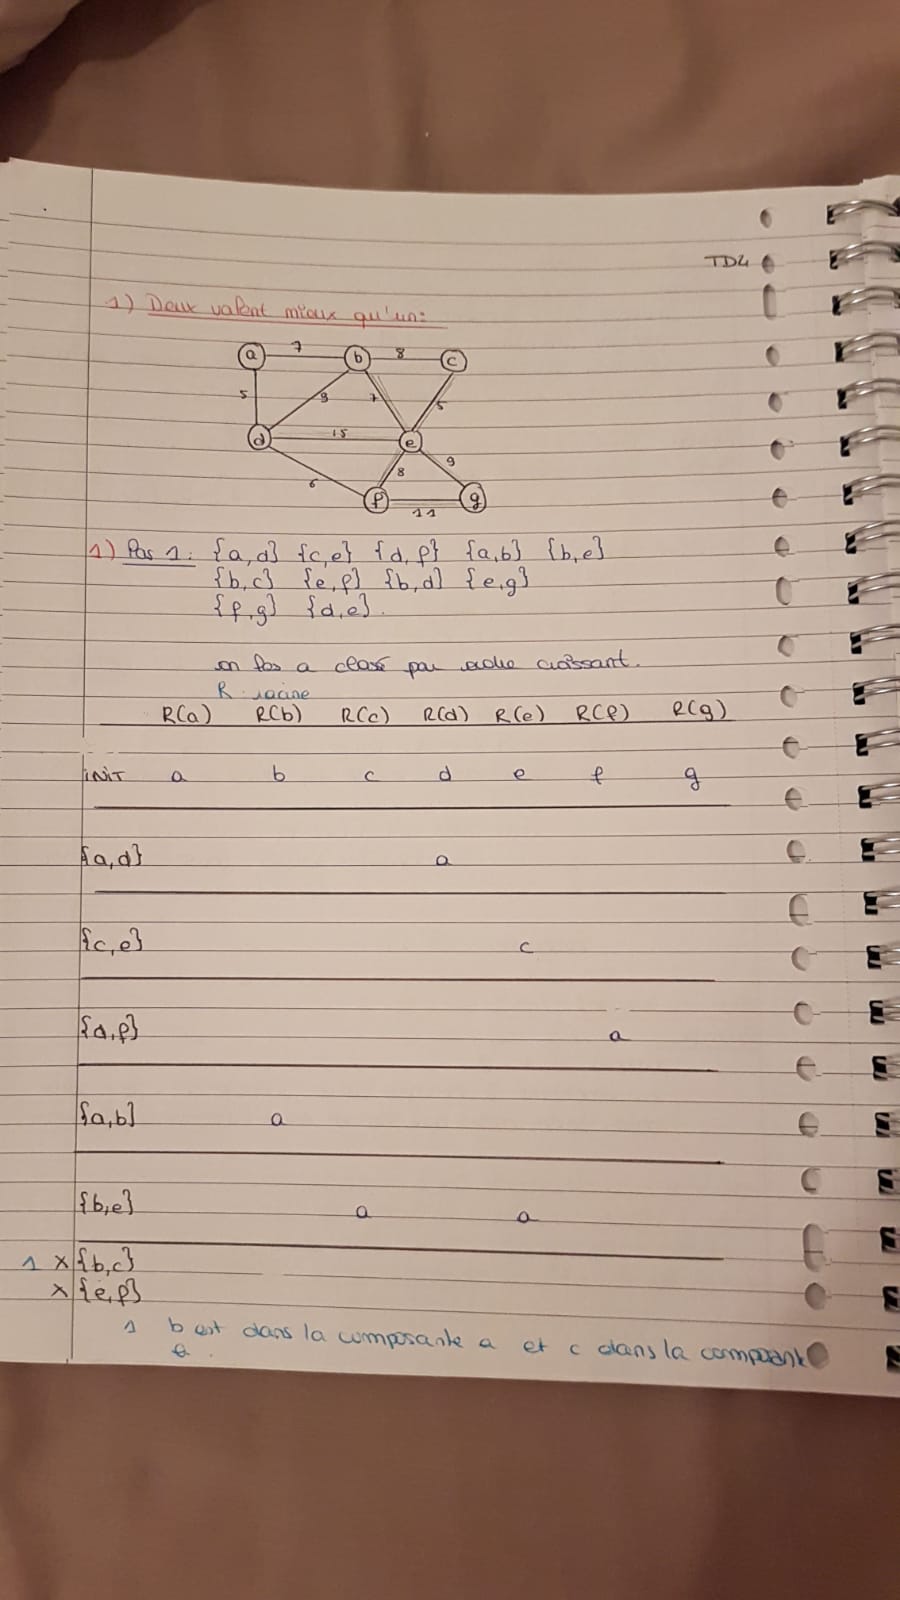 TD4
1) Deux valent mieux qu'un:
a 7 b 8 c
5 9 7 5
d 15 e
6 8 9
f 11 g
1) Pas 1: {a,d} {c,e} {d,f} {a,b} {b,e}
{b,c} {e,f} {b,d} {e,g}
{f,g} {d,e}.
on les a classé par ordre croissant.
R: racine
R(a) R(b) R(c) R(d) R(e) R(f) R(g)
INIT a b c d e f g
{a,d} a
{c,e} c
{d,f} a
{a,b} a
{b,e} a a
1 x {b,c}
x {e,f}
1 b est dans la composante a et c dans la composante
a.